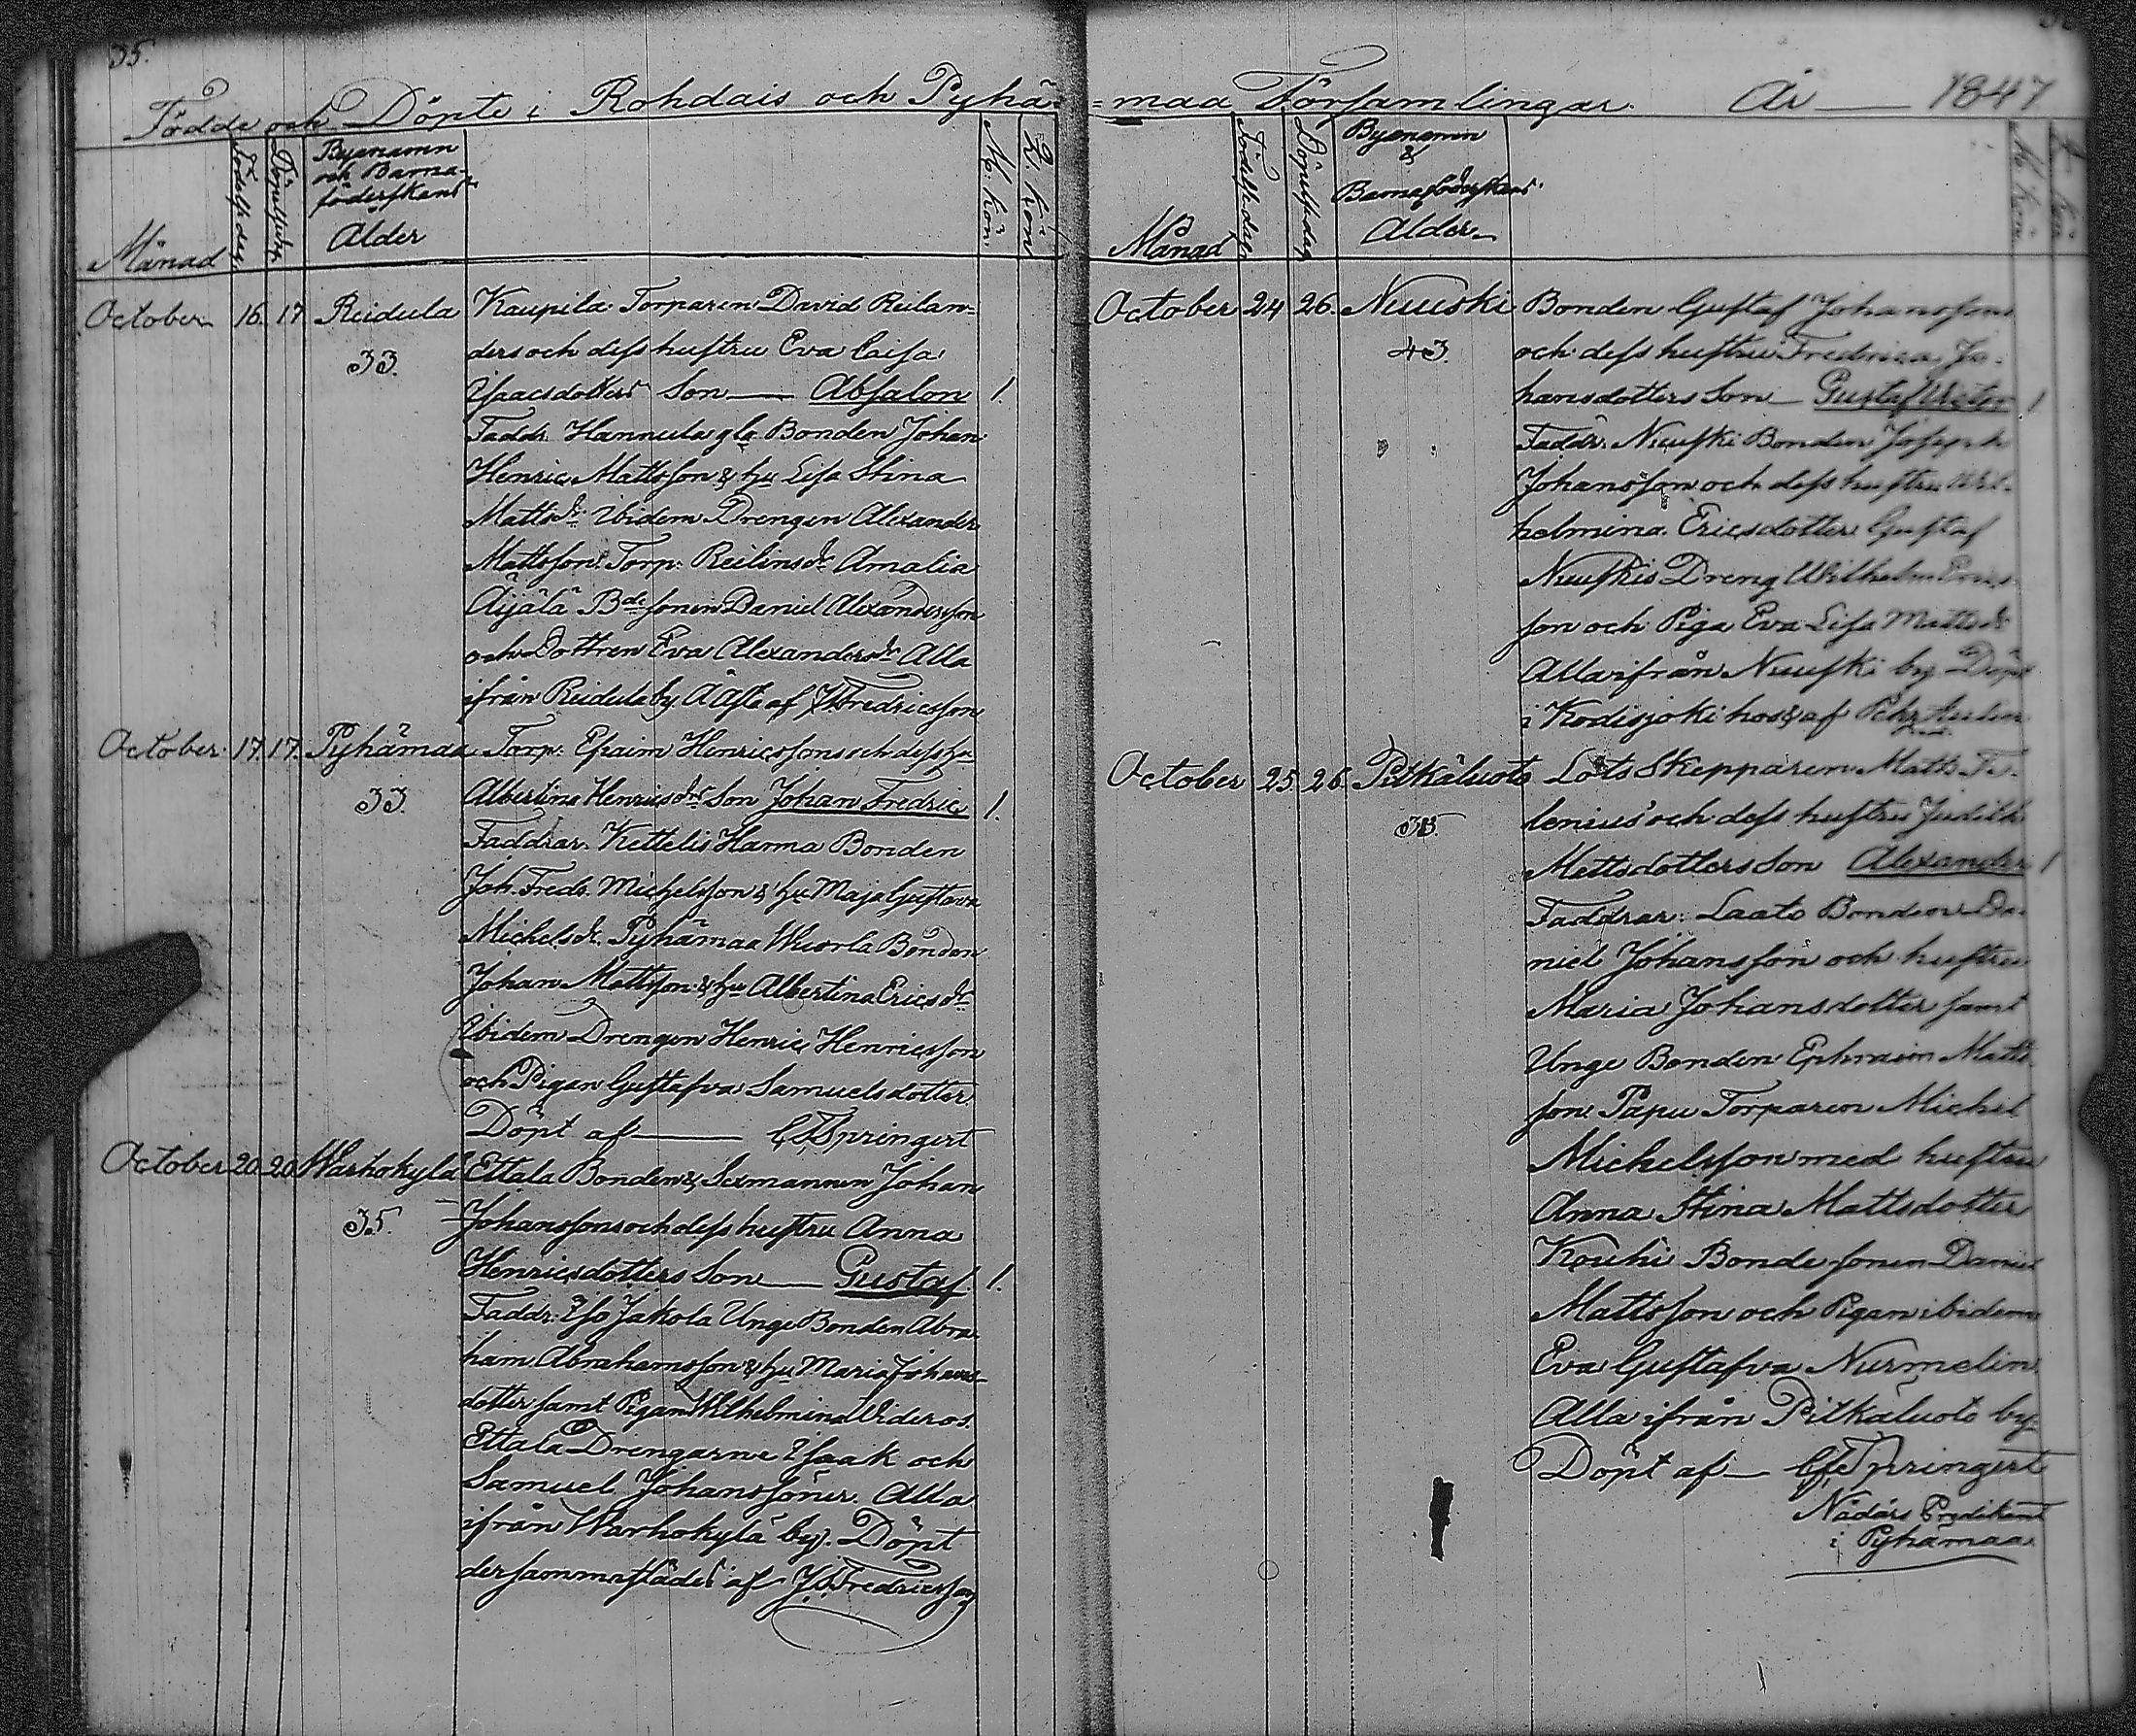 35.
Födde och Döpte i Rohdais och Pyhä=
Månad
Födelsedag
Döpelsedag
Byanamn
och Barna-
föderskans
Ålder
M: kön
Q. kön
October 16. 17 Reidula Kaupila Torparen David Reilan-
33. ders och dess hustru Eva Caisa
Isaacsdotters Son — Absalon 1.
Faddr. Hannula gla Bonden Johan
Henric Mattsson & hu Lisa Stina
Mattsdr Ibidem Drengen Alexander
Mattsson. Torp: Reilins dr Amalia
Äijälä Bde sonen Daniel Alexandersson
och Dottren Eva Alexandersdr Alla
ifrån Reidula by af Fredricsson
October 17. 17. Pyhämaa Torp: Efraim Henricssons och dess hu
33. Albertina Henricsdrs Son Johan Fredric 1.
Faddrar. Kettelis Harma Bonden
Joh. Fredr. Michelsson & hu Maja Gustava
Michelsdr. Pyhämaa Wuorla Bonden
Johan Mattsson & hu Albertina Ericsdr
Ibidem Drengen Henric Henricsson
och Pigan Gustafva Samuelsdotter.
Döpt af — Springert
October 20. 20 Warhokylä Ettala Bonden & Sexmannen Johan
35. Johanssons och dess hustru Anna
Henricsdotters Son — Gustaf. 1.
Faddr: Iso Jakola Unge Bonden Abra-
ham Abrahamsson & hu Maria Johans-
dotter samt Pigan Wilhelmina Videros.
Ettala Drengarne Isaak och
Samuel Johanssöner. Alla
ifrån Warhokylä by. Döpt
dersammastädes af Fredricsson
maa Församlingar. År — 1847
Månad
Födelsedag
Döpelsedag
Byanamn
&
Barnaföderskans
Ålder
M: kön
Q. kön
October 24 26. Nuuski Bonden Gustaf Johanssons
43 och dess hustru Fredrica Jo-
hansdotters Son — Gustaf Victor 1
Faddr. Nuuski Bonden Joseph
Johansson och dess hustru Wil-
helmina Ericsdotter Gustaf
Nuuskis Dreng Wilhelm Erics-
son och Piga Eva Lisa Mattsdr
Alla ifrån Nuuski by Döpt
i Kodisjoki af
October 25. 26. Pitkäluoto Lots Skepparen Matts Fe-
35. lenius och dess hustru Judith
Mattsdotters Son Alexander 1
Faddrar: Laato Bonden Da-
niel Johansson och hustru
Maria Johansdotter samt
Unge Bonden Ephraim Matts-
son Papu Torparen Michel
Michelsson med hustru
Anna Stina Mattsdotter
Kouhi Bonde sonen Daniel
Mattsson och Pigan ibidem
Eva Gustafva Nurmelin.
Alla ifrån Pitkäluoto by.
Döpt af — Springert
Nådårs Predikant
i Pyhämaa.